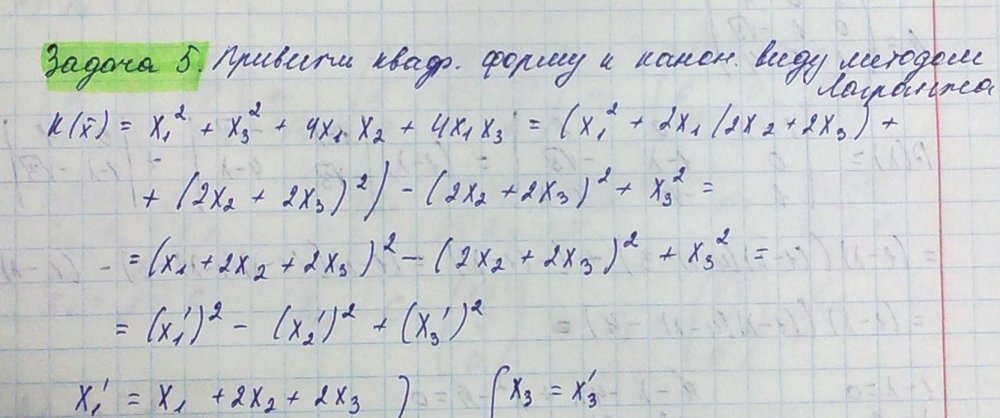 Задача 5. Привести квадр. форму к канон. виду методом
Лагранжа
K(x̄) = x₁² + x₃² + 4x₁x₂ + 4x₁x₃ = (x₁² + 2x₁(2x₂ + 2x₃) +
+ (2x₂ + 2x₃)²) - (2x₂ + 2x₃)² + x₃² =
= (x₁ + 2x₂ + 2x₃)² - (2x₂ + 2x₃)² + x₃² =
= (x₁')² - (x₂')² + (x₃')²
x₁' = x₁ + 2x₂ + 2x₃ } { x₃ = x₃'